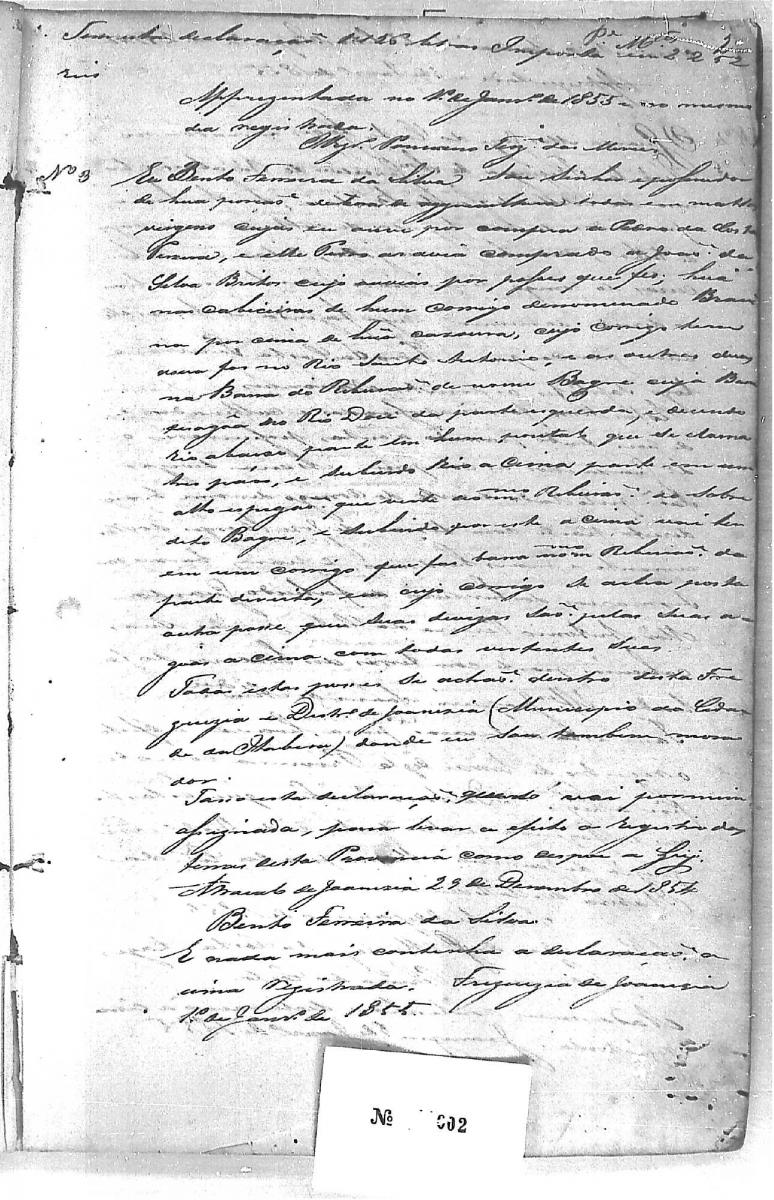 Tem esta declaração letras Importa em 2º 252
reis
Apprezentada no 1º de Janrº de 1855 e no mesmo
dia registrada.
Nº 3 Eu Bento Ferreira da Silva Sou Senhor e possuidor
de hua porsaõ de terras de agricultura todas em mattos
virgens cujas eu ouve por compra a Pedro da Costa
Pereira, e elle Pedro as avia comprado a Joaõ da
Silva Brittos cujo avias por posses que fes, huã
nas cabiceiras de hum corrigo denominado Brau
na por cima de huã caxoeira, cujo corrigo tem
barra no Rio Santo Antonio, e as outras duas
na Barra do Ribeiraõ de nome Bagre cujã Bar
no Rio Doce da parte esquerda, e decendo
Rio abaixo parte em hum pontal que se clama
tres páos, e subindo Rio a Cima parte em um
alto espigaõ que verte ao mmo Ribeiraõ o sobre
dito Bagre, e subindo por este a cima vai ter
em um corrigo que fas barra no mmo Ribeiraõ da
parte direita, em cujo corrigo se acha posta
outra posse, que suas divizas saõ pelas suas a-
goas a cima com todas vertentes suas.
Todas estas posses se achaõ dentro desta Fre
guezia e Destrº de Joanezia (Municipio da Cida
de da Itabira) donde eu sou tambem mora
dor.
Fasso esta declaraçaõ que vai por mim
assignada, para levar a efeito o registro das
terras desta Provincia como despoe a Ley.
Arraial de Joanezia 29 de Dezembro de 1854
Bento Ferreira da Silva
E nada mais continha a declaraçaõ a
cima registrada. Freguezia de Joanezia
1º de Janrº de 1855.
Nº 002